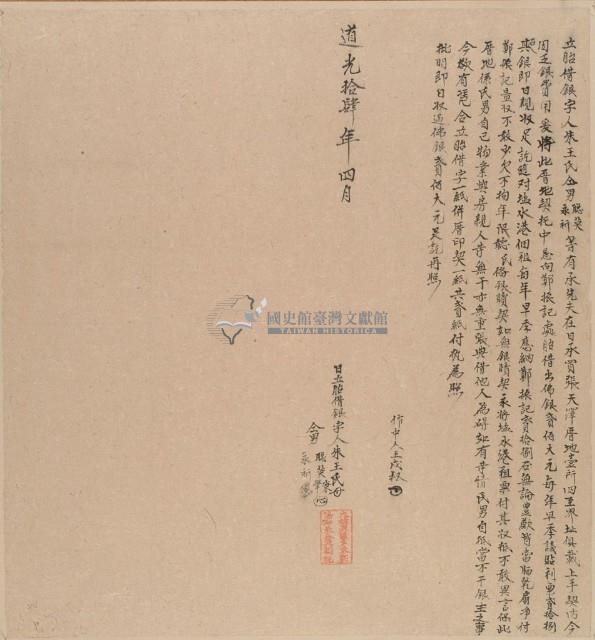 立胎借銀字人朱王氏仝男聰癸永祈等有承先夫在日承買張天澤厝地壹所四至界址俱載上手契內今
因乏銀費用爰將此厝地契托中恳向鄭振記處胎借出佛銀貳佰大元每年早季議貼利粟貳拾捌
其銀即日親收足訖隨对塩水港佃租每年早季應納鄭振記貳拾捌石無論豐歉皆當晒乾扇净付
鄭振記量收不敢少欠不拘年限聽氏俻銀贖契如無銀贖契永將塩水港租粟付其收抵不敢異言保此
厝地係氏男自己物業與房親人等無干亦無重張典借他人為碍如有等情氏男自抵當不干銀主之事
今欲有憑合立胎借字一紙併厝印契一紙共貳紙付執為照
批明即日收過佛銀貳佰大元足訖再照
作中人王成叔
道光拾肆年四月
日立胎借銀字人朱王氏
仝男聰癸
永祈
國史館臺灣文獻館
TAIWAN HISTORICA